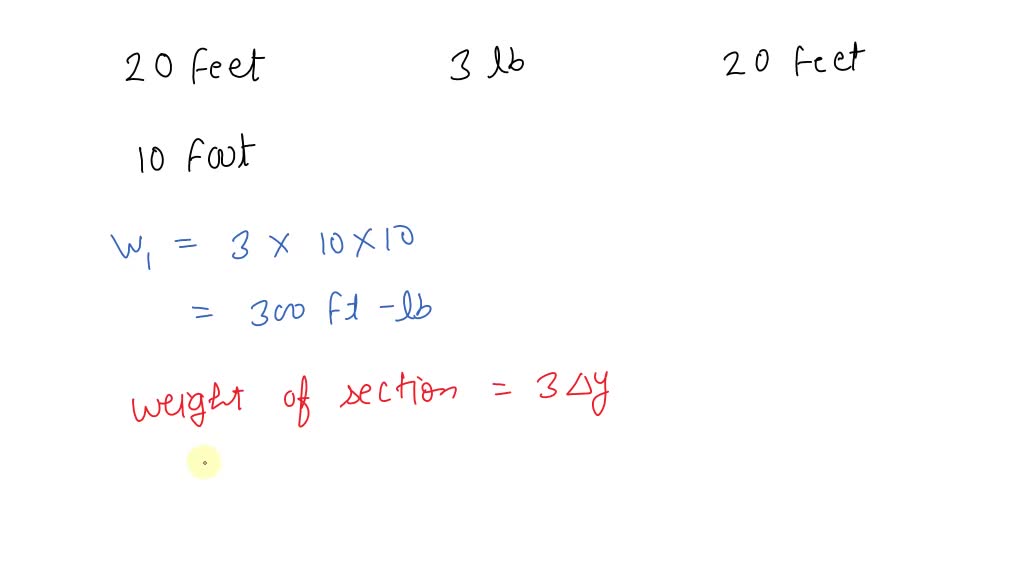 20 feet 3 lb 20 feet
10 foot
W₁ = 3 × 10 × 10
= 300 ft-lb
weight of section = 3Δy